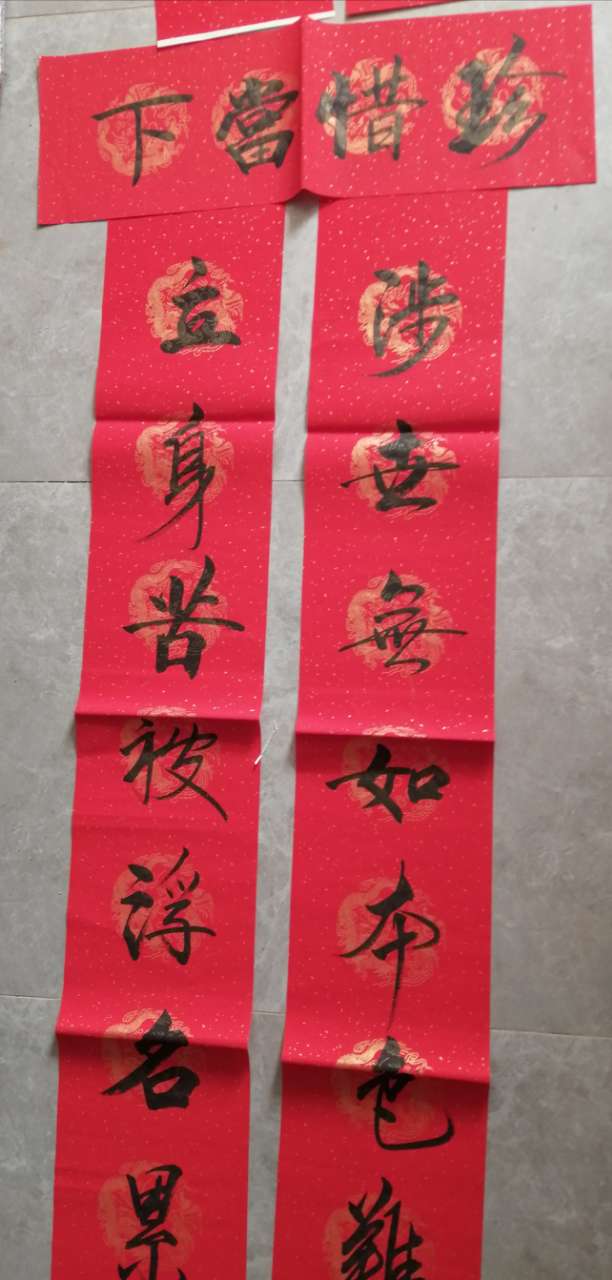 珍惜當下
涉世無如本色難
立身苦被浮名累